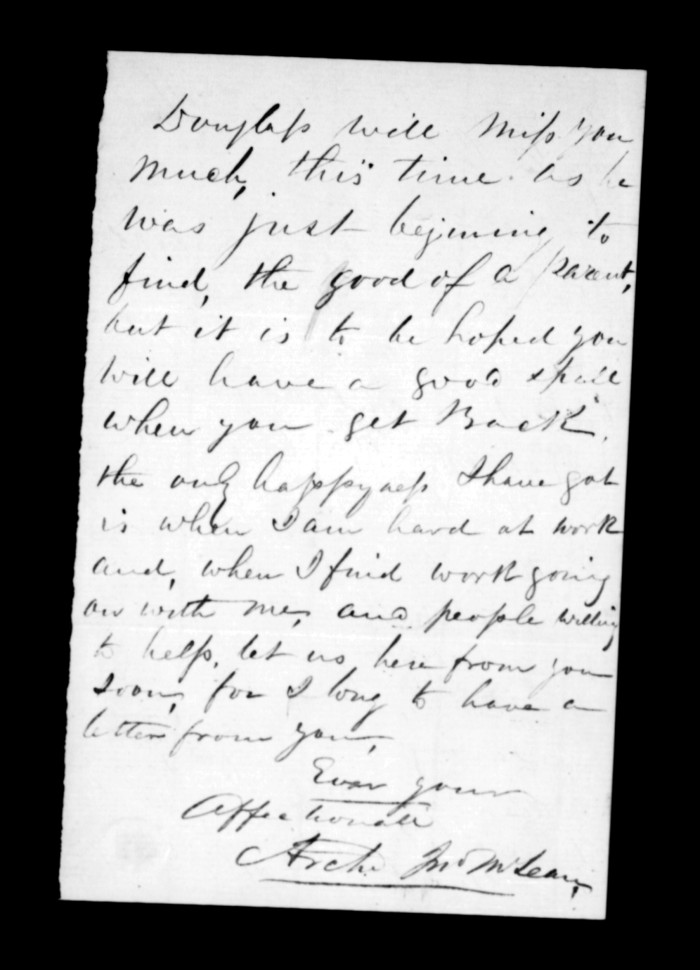 Douglass will miss you
much, this time as he
was just begining to
find, the good of a parent,
but it is to be hoped you
will have a good spell
when you get Back,
the only happyness I have got
is when I am hard at work
and, when I find work going
on with me, and people willing
to help, let us here from you
soon, for I long to have a
letter from you,
Ever your
Affectionate
Archd Jno McLean,